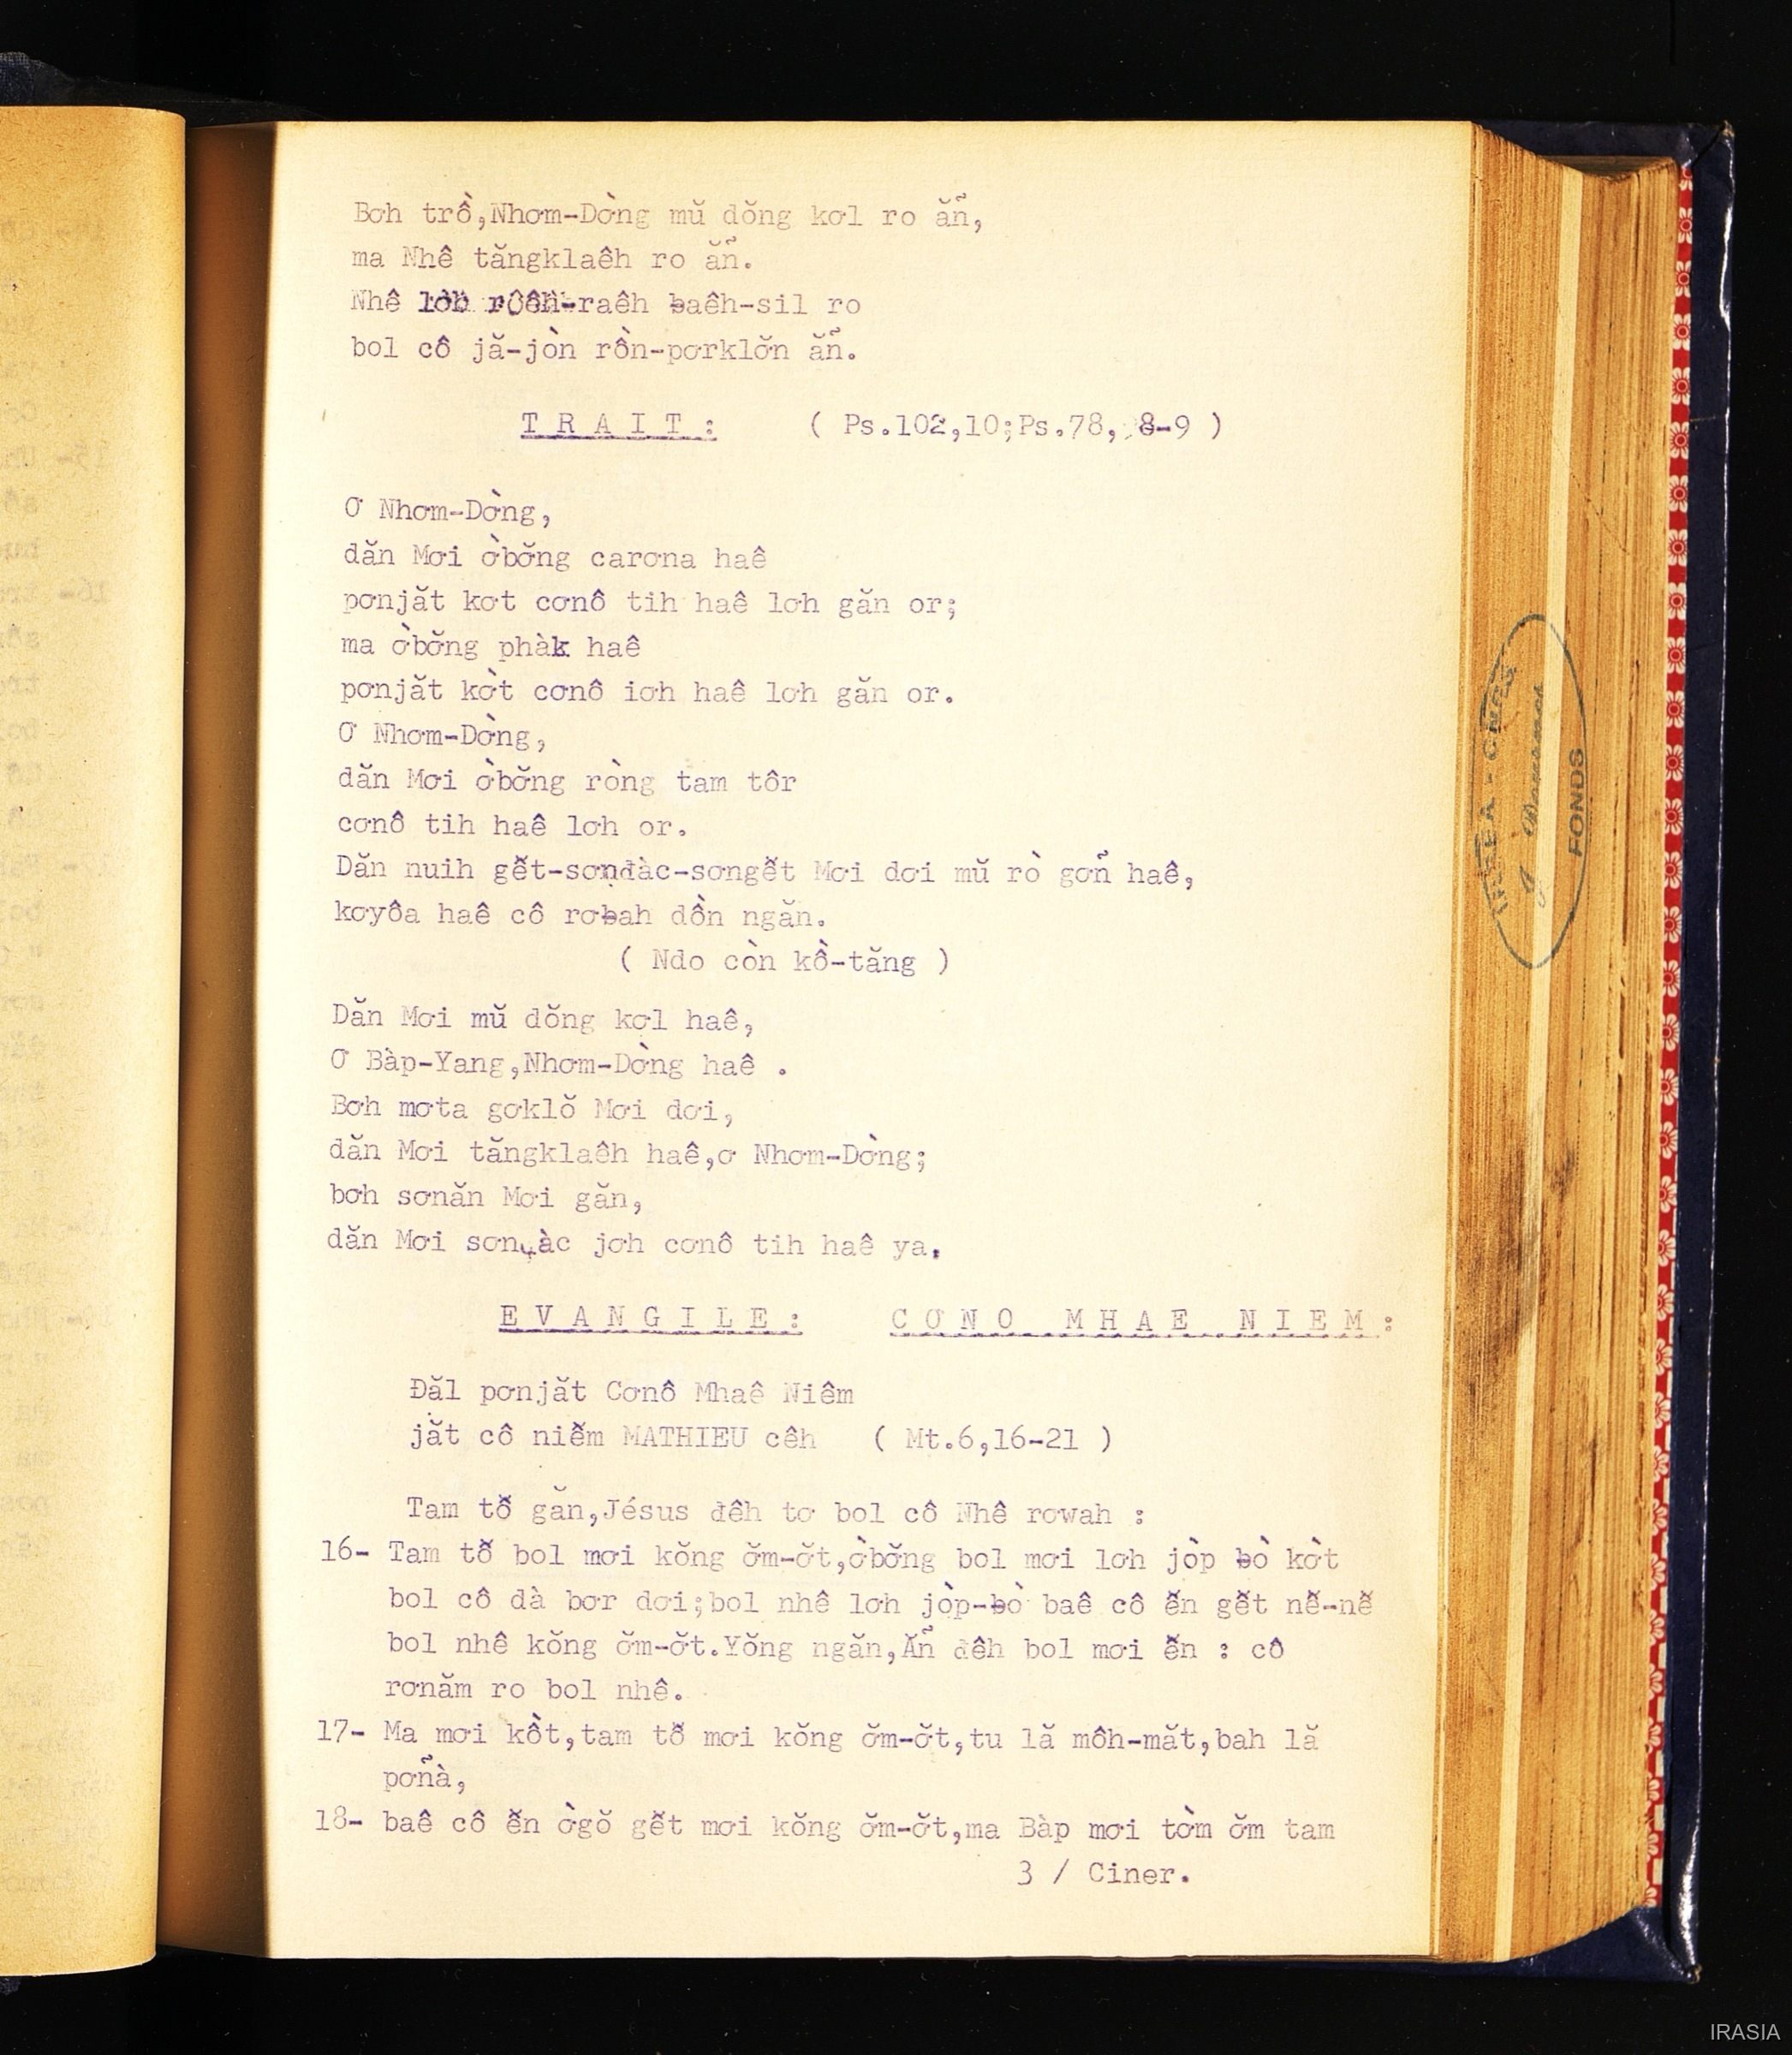 Bơh trồ,Nhơm-Dờng mŭ dŏng kơl ro ăñ̉,
ma Nhê tăngklaêh ro ăñ̉.
Nhê lơh rơ̂êh-raêh ƀaêh-sil ro
bol cô jă-jòn rồn-pơrklơ̆n ăñ̉.
T R A I T : ( Ps.102,10;Ps.78, 8-9 )
Ơ Nhơm-Dờng,
dăn Mơi ờbơ̆ng carơna haê
pơnjăt kơt cơnô tih haê lơh găn or;
ma ờbơ̆ng phàk haê
pơnjăt kờt cơnô iơh haê lơh găn or.
Ơ Nhơm-Dờng,
dăn Mơi ờbơ̆ng ròng tam tôr
cơnô tih haê lơh or.
Dăn nuih gê̆t-sơnđàc-sơngê̆t Mơi dơi mŭ rò gơñ̉ haê,
kơyôa haê cô rơƀah dồn ngăn.
( Ndo còn kồ-tăng )
Dăn Mơi mŭ dŏng kơl haê,
Ơ Bàp-Yang,Nhơm-Dờng haê .
Bơh mơta gơklŏ Mơi dơi,
dăn Mơi tăngklaêh haê,ơ Nhơm-Dờng;
bơh sơnăn Mơi găn,
dăn Mơi sơnđàc jơh cơnô tih haê ya.
E V A N G I L E : C Ơ N O M H A E N I E M :
Đăl pơnjăt Cơnô Mhaê Niêm
jăt cô niê̆m MATHIEU cêh ( Mt.6,16-21 )
Tam tô̆ găn,Jésus đêh tơ bol cô Nhê rơwah :
16- Tam tô̆ bol mơi kŏng ơ̆m-ơ̆t,ờbơ̆ng bol mơi lơh jòp ƀò kờt
bol cô dà bơr dơi;bol nhê lơh jòp-ƀò baê cô ê̆n gê̆t nê̆-nê̆
bol nhê kŏng ơ̆m-ơ̆t.Yŏng ngăn,Ăñ̉ đêh bol mơi ê̆n : cô
rơnăm ro bol nhê.
17- Ma mơi kồt,tam tô̆ mơi kŏng ơ̆m-ơ̆t,tu lă môh-măt,bah lă
pơñ̉à,
18- baê cô ê̆n ờgŏ gê̆t mơi kŏng ơ̆m-ơ̆t,ma Bàp mơi tờm ơ̆m tam
3 / Ciner.
FONDS
IRASIA